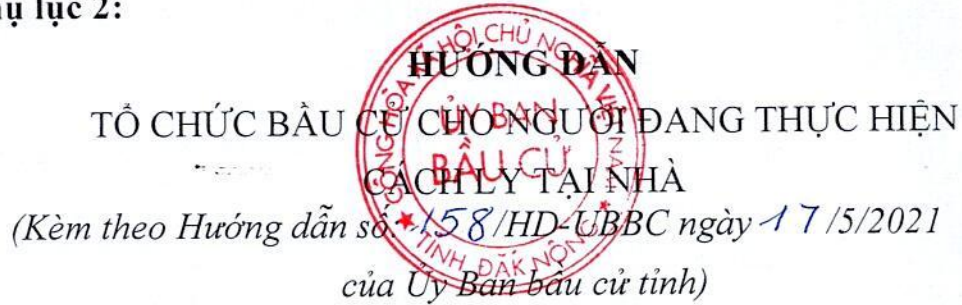 ụ lục 2:
HƯỚNG DẪN
TỔ CHỨC BẦU CỬ CHO NGƯỜI ĐANG THỰC HIỆN
CÁCH LY TẠI NHÀ
(Kèm theo Hướng dẫn số 158/HD-UBBC ngày 17/5/2021
của Ủy Ban bầu cử tỉnh)
CỘNG HÒA XÃ HỘI CHỦ NGHĨA VIỆT NAM
ỦY BAN
BẦU CỬ
TỈNH ĐẮK NÔNG